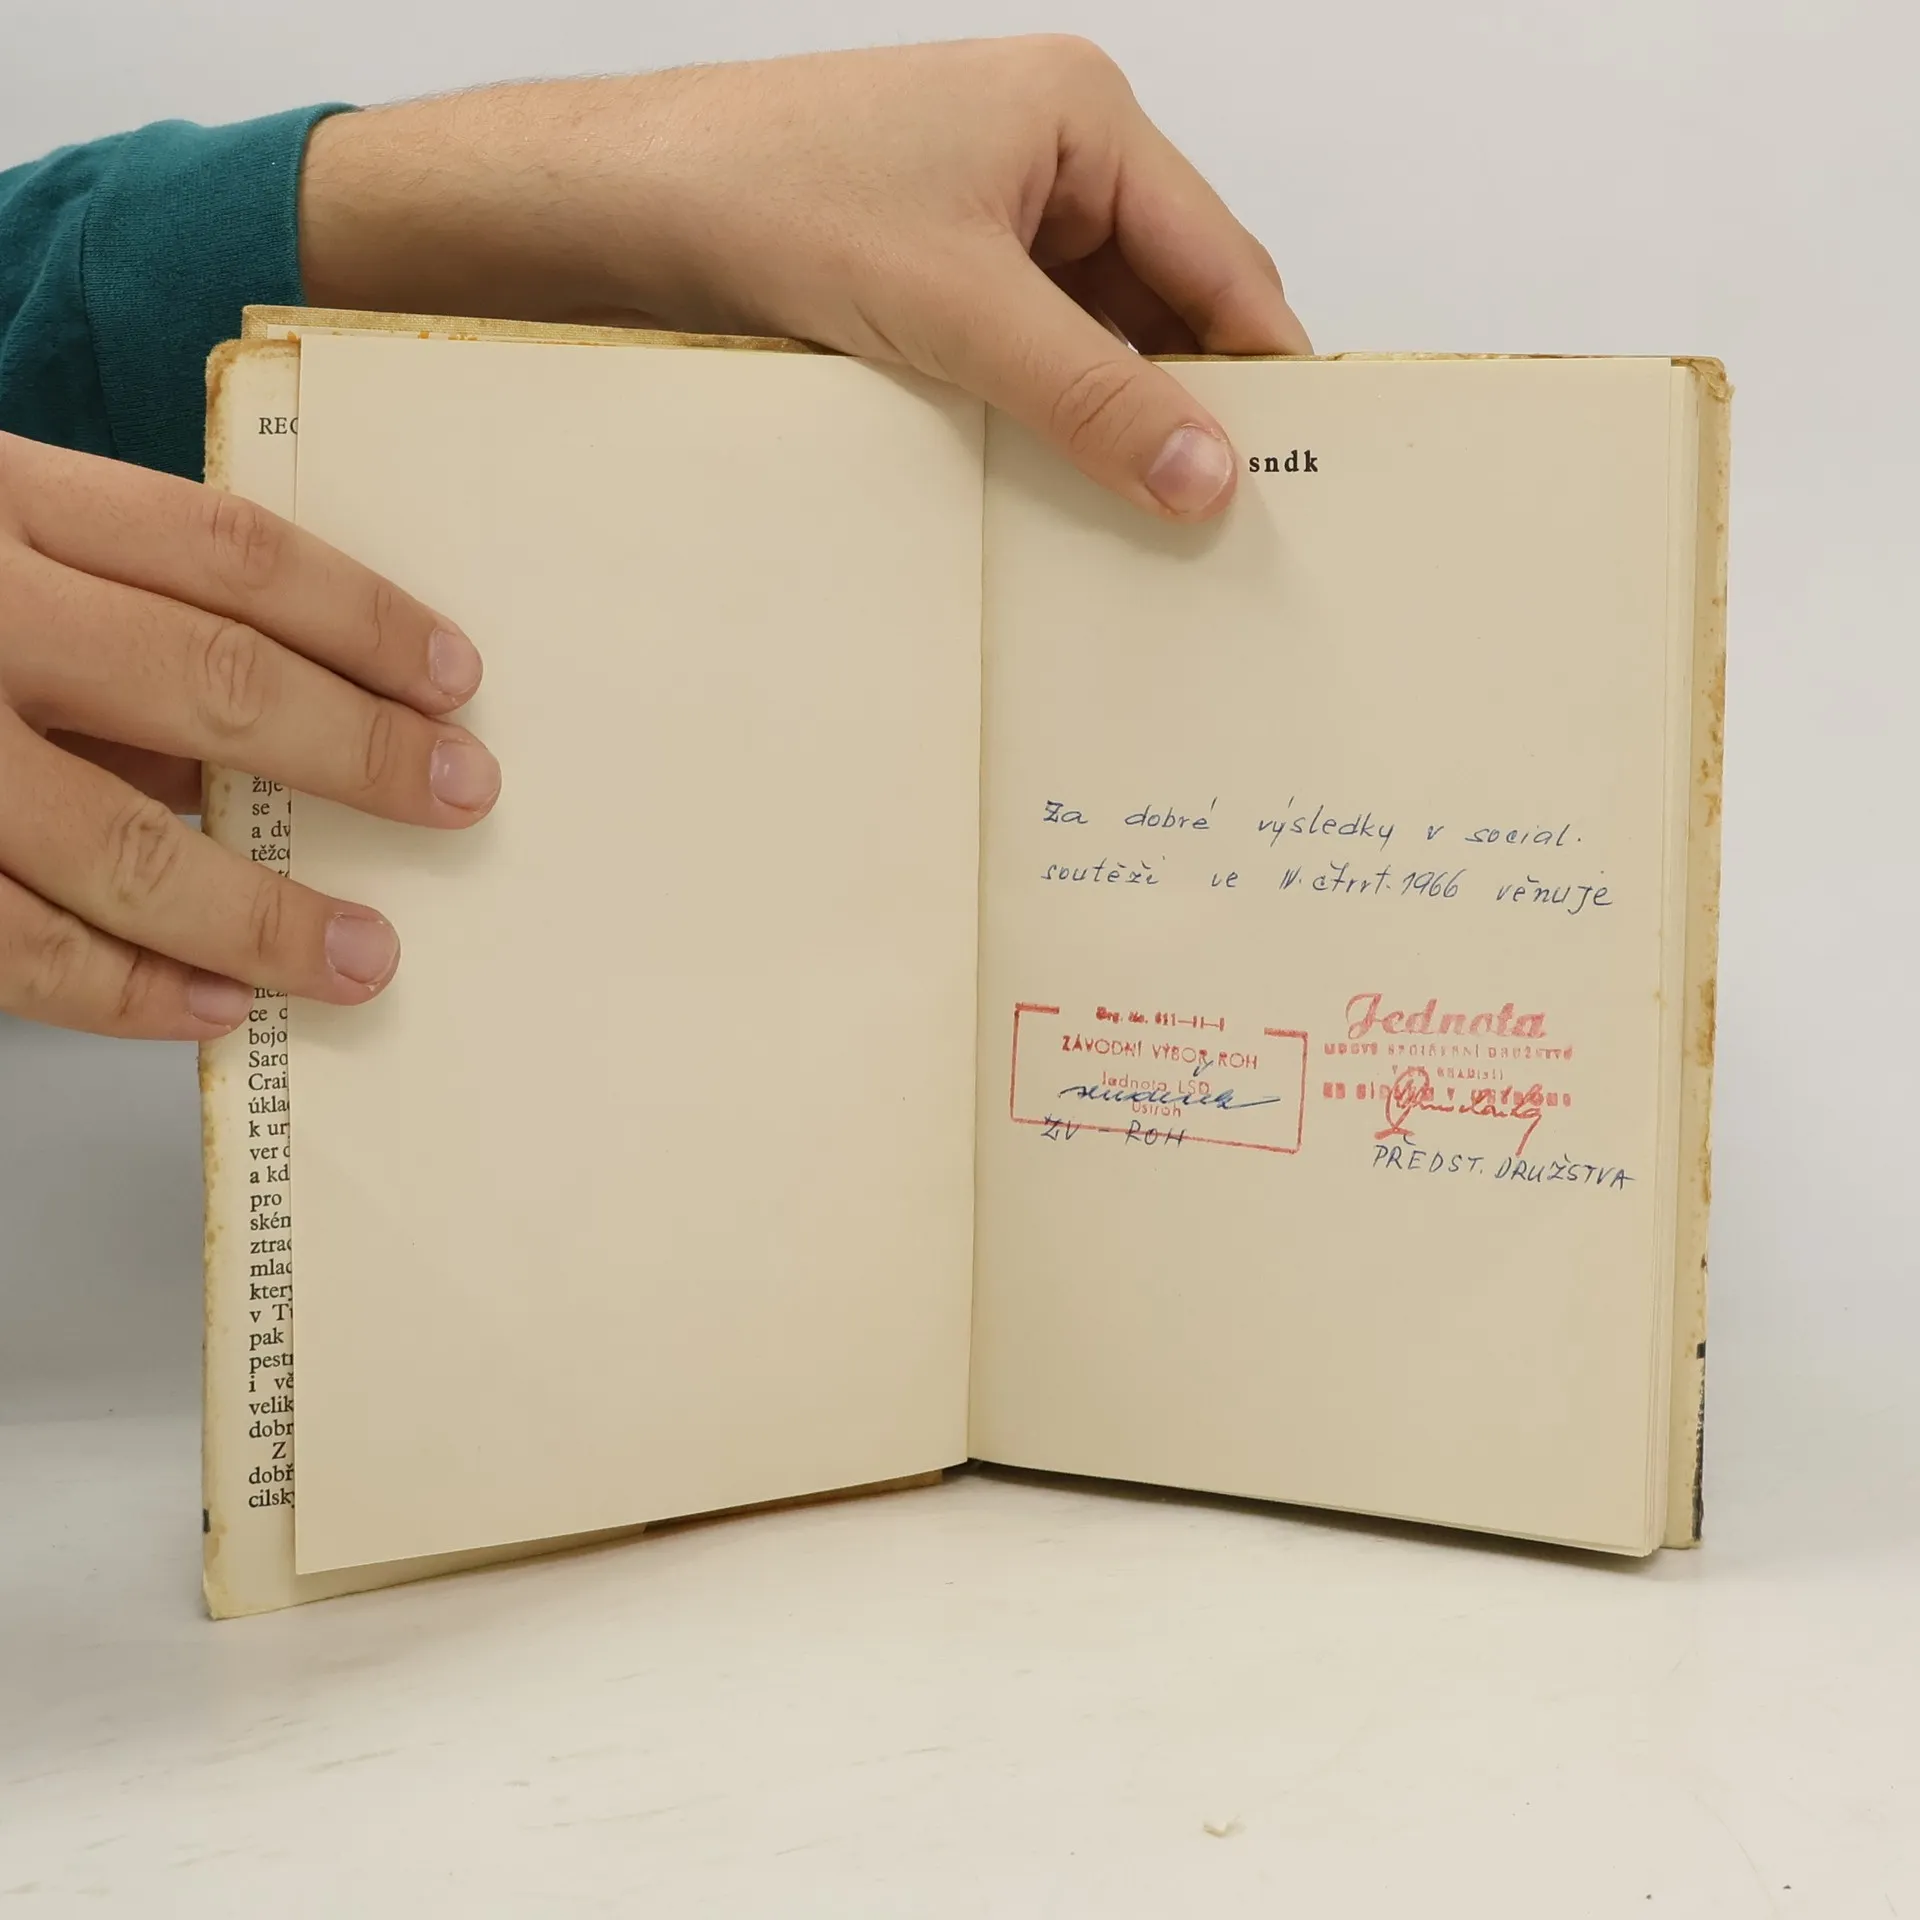 REC
žije
se t
a dv
těžce
ce
bojo
Saro
Crai
úkla
k
ver
a kd
pro
ském
ztrac
mlad
který
v
pak
pest
i vě
velik
dobr
Z
dobř
cilsk
sndk
Za dobré výsledky v social.
soutěži ve IV. čtvrt. 1966 věnuje
ZÁVODNÍ VÝBOR ROH
Jednota LSD
ZV - ROH
Jednota
PŘEDST. DRUŽSTVA